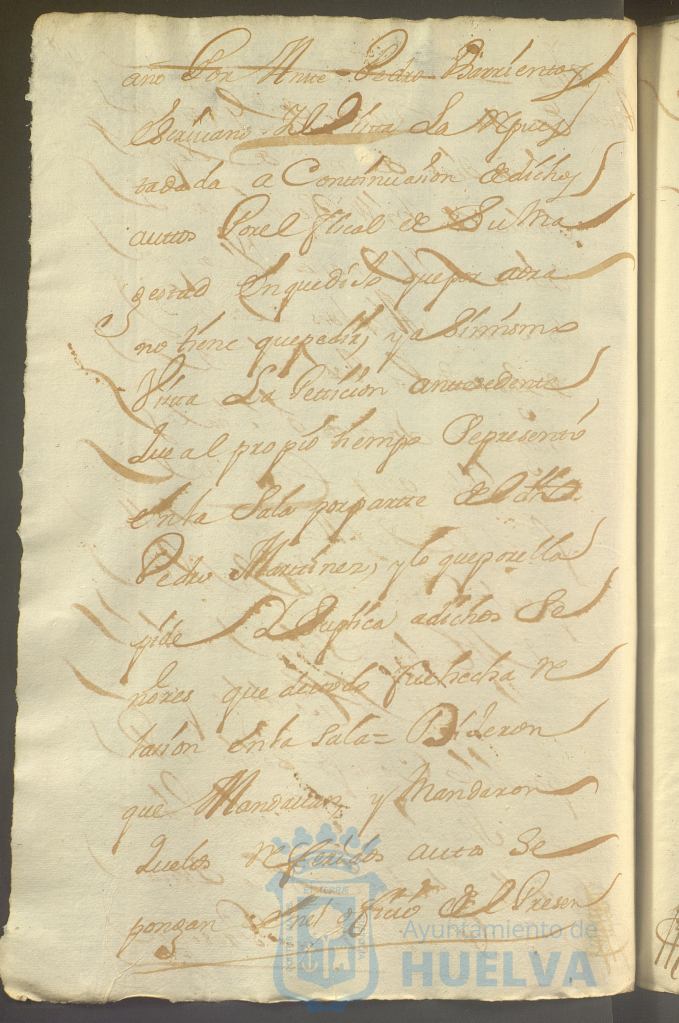 año Por Ante Pedro Barrientos
Escriuano Y Vista La Repues
ta dada a Continuasion de dichos
auttos Por el fiscal de Su Ma
gestad En que dijo que por aora
no tiene que pedir, y asimismo
Vista La Pettición antesedente
que al propio tiempo Represento
en la Sala por partte de el dho
Pedro Martinez, y lo que por ella
pide Y Suplica a dichos Se
ñores que de todo fue hecha Re
lasion en la Sala = Dijeron
que Mandauan, y Mandaron
que los referidos auttos Se
pongan En el ofisio de el Presen
Ayuntamiento de
HUELVA